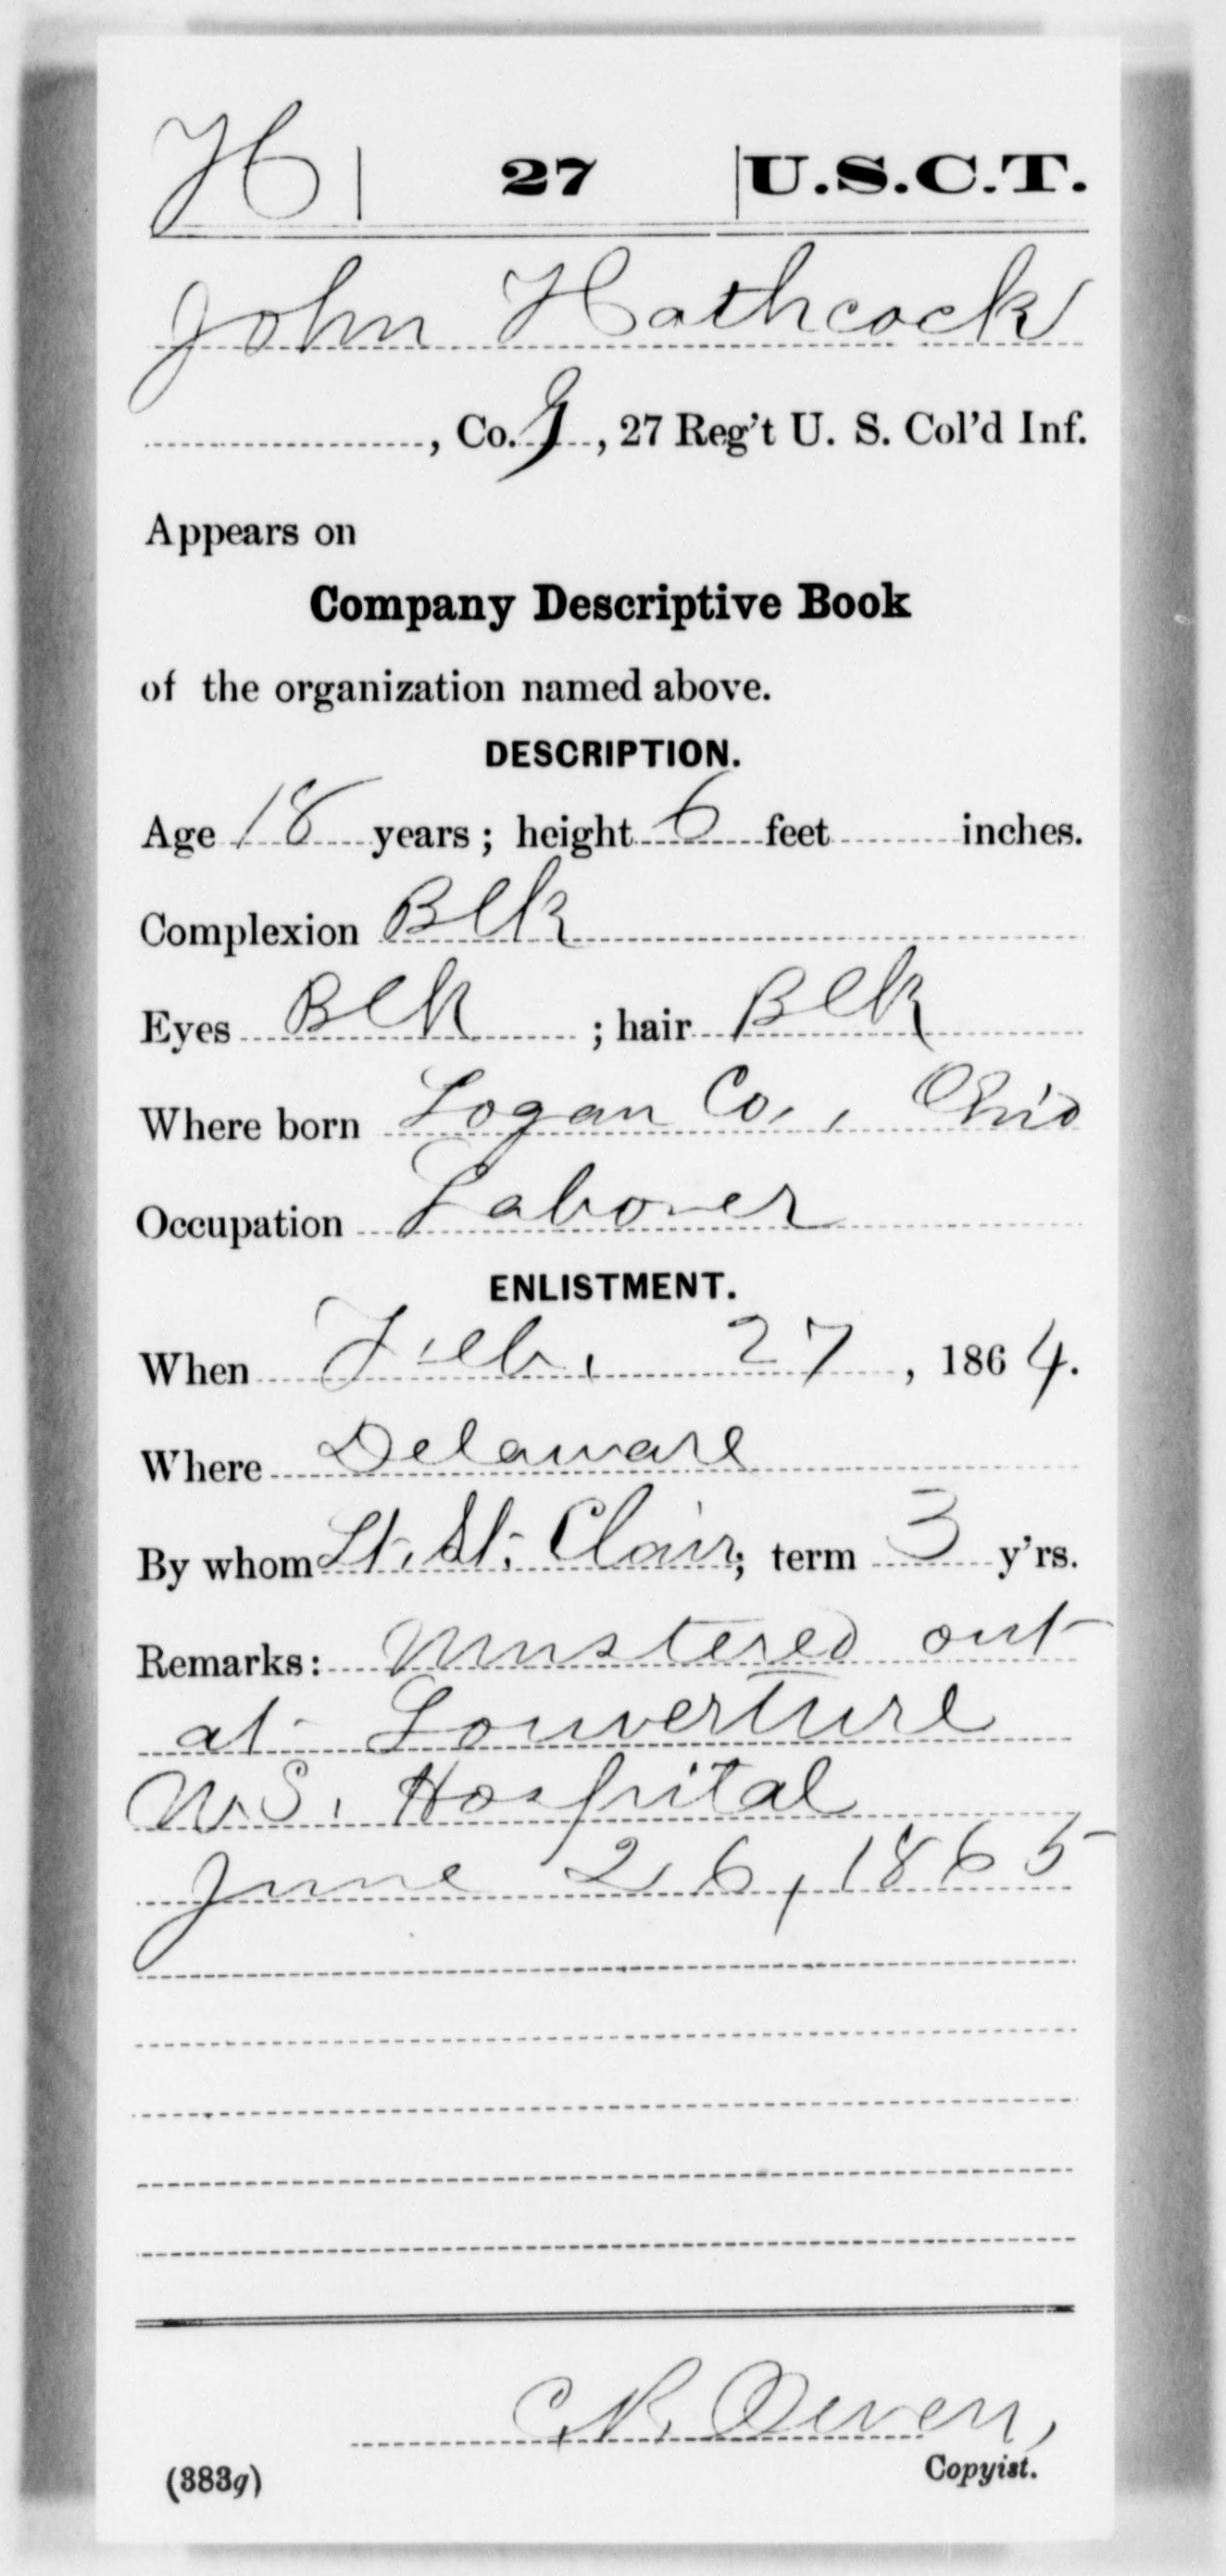 H | 27 | U.S.C.T.
John Hathcock
, Co. G, 27 Reg't U. S. Col'd Inf.
Appears on
Company Descriptive Book
of the organization named above.
DESCRIPTION.
Age 18 years; height 6 feet inches.
Complexion Blk
Eyes Blk; hair Blk
Where born Logan Co., Ohio
Occupation Laborer
ENLISTMENT.
When Feb. 27, 1864.
Where Delaware
By whom Lt. St. Clair; term 3 y'rs.
Remarks: Mustered out
at Louverture
U.S. Hospital
June 26, 1865
Owen,
(383g) Copyist.